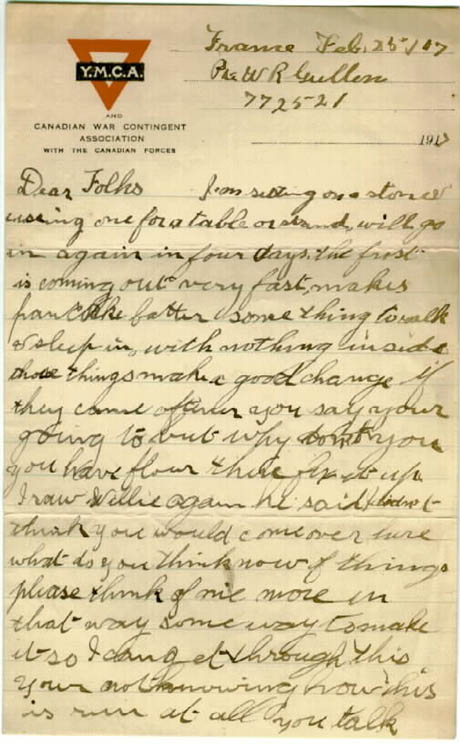 Y.M.C.A.
AND
CANADIAN WAR CONTINGENT
ASSOCIATION
WITH THE CANADIAN FORCES
France Feb, 25/17
Pte W R Gullen
772521
1917
Dear Folks I'm setting on a stone &
useing one for a table or stand, will go
in again in four days. the frost
is coming out very fast, makes
pancake batter something to walk
& sleep in, with nothing inside
those things make a good change if
they came oftener you say your
going to but why dont you
you have flour there fix it up
I saw Willie again he said didn't
think you would come over here
what do you think now of things
please think of me more in
that way some way to make
it so I can get through this
your not knowing how this
is run at all you talk